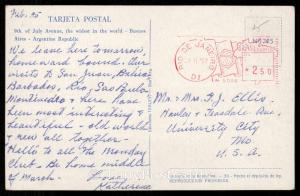 Feb. 25
TARJETA POSTAL
9th. of July Avenue, the widest in the world - Buenos
Aires - Argentine Republic
We leave here tomorrow,
homeward bound. Our
visits to San Juan,
Barbados, Rio, Sao Paulo
Montevideo & here have
been most interesting &
beautiful - old world &
new all together -
Hello to all the Monday
Club - Be home middle
of March - Love,
Katherine
RIO DE JANEIRO
D1
250
Mr. & Mrs. F. J. Ellis
Hanley & Teasdale Ave
University City
Mo
U.S.A.